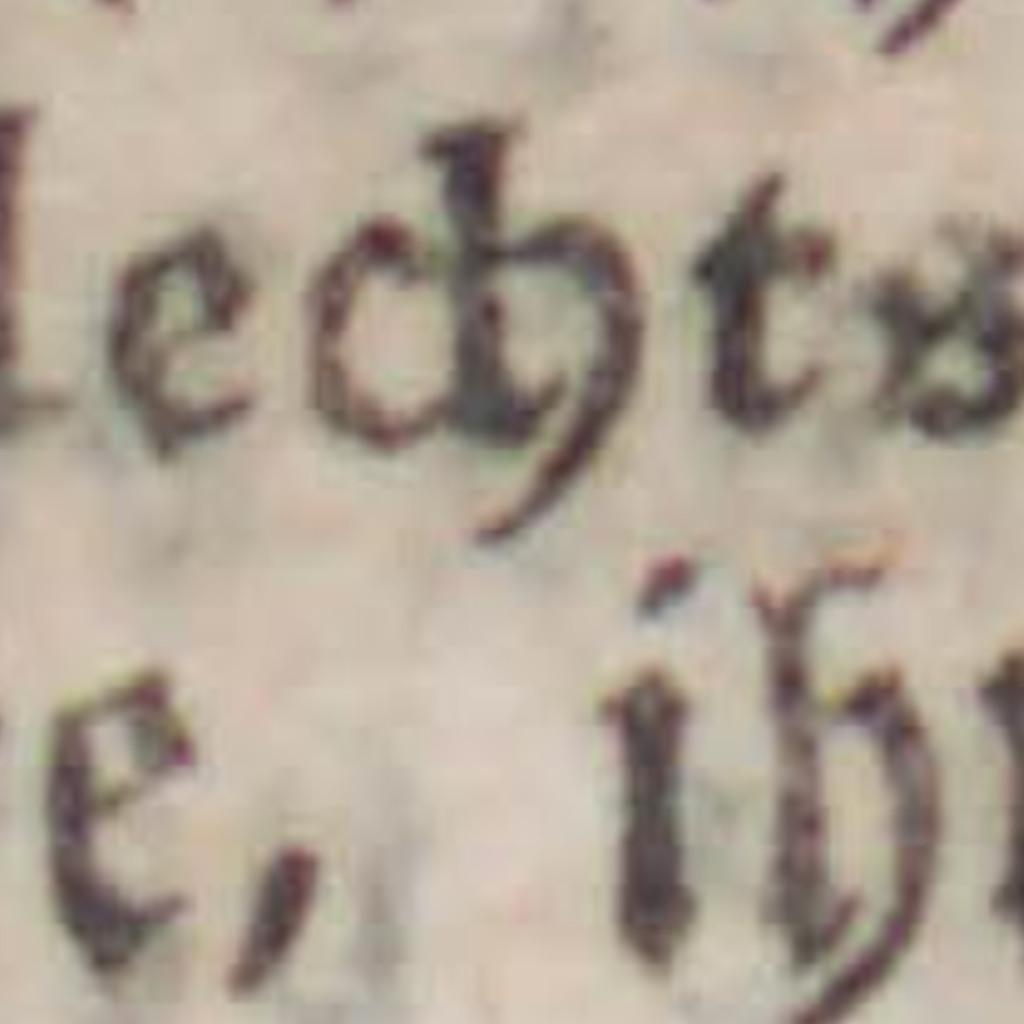 lechts
e, ih